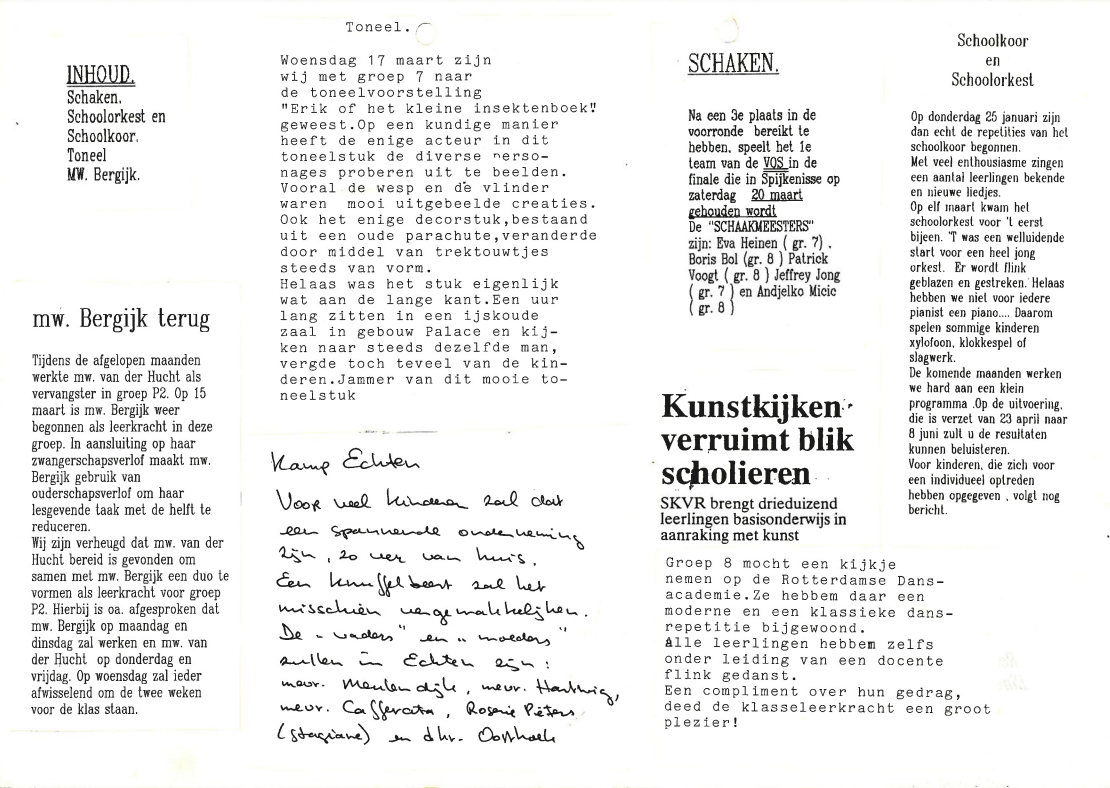 INHOUD.
Schaken.
Schoolorkest en
Schoolkoor.
Toneel
MW. Bergijk.
mw. Bergijk terug
Tijdens de afgelopen maanden
werkte mw. van der Hucht als
vervangster in groep P2. Op 15
maart is mw. Bergijk weer
begonnen als leerkracht in deze
groep. In aansluiting op haar
zwangerschapsverlof maakt mw.
Bergijk gebruik van
ouderschapsverlof om haar
lesgevende taak met de helft te
reduceren.
Wij zijn verheugd dat mw. van der
Hucht bereid is gevonden om
samen met mw. Bergijk een duo te
vormen als leerkracht voor groep
P2. Hierbij is oa. afgesproken dat
mw. Bergijk op maandag en
dinsdag zal werken en mw. van
der Hucht op donderdag en
vrijdag. Op woensdag zal ieder
afwisselend om de twee weken
voor de klas staan.
Toneel.
Woensdag 17 maart zijn
wij met groep 7 naar
de toneelvoorstelling
"Erik of het kleine insektenboek"
geweest.Op een kundige manier
heeft de enige acteur in dit
toneelstuk de diverse perso-
nages proberen uit te beelden.
Vooral de wesp en de vlinder
waren mooi uitgebeelde creaties.
Ook het enige decorstuk,bestaand
uit een oude parachute,veranderde
door middel van trektouwtjes
steeds van vorm.
Helaas was het stuk eigenlijk
wat aan de lange kant.Een uur
lang zitten in een ijskoude
zaal in gebouw Palace en kij-
ken naar steeds dezelfde man,
vergde toch teveel van de kin-
deren.Jammer van dit mooie to-
neelstuk
Kamp Echten
Voor veel kinderen zal dat
een spannende onderneming
zijn, zo ver van huis.
Een knuffelbeest zal het
misschien vergemakkelijken.
De "vaders" en "moeders"
zullen in Echten zijn:
mevr. Meulendijk, mevr. Hartwig,
mevr. Cafferata, Roserie Pieters
(stagiare) en dhr. Oosthoek
SCHAKEN.
Na een 3e plaats in de
voorronde bereikt te
hebben, speelt het 1e
team van de VOS in de
finale die in Spijkenisse op
zaterdag 20 maart
gehouden wordt
De "SCHAAKMEESTERS"
zijn: Eva Heinen ( gr. 7) .
Boris Bol (gr. 8 ) Patrick
Voogt ( gr. 8 ) Jeffrey Jong
( gr. 7 ) en Andjelko Micic
( gr. 8 )
Kunstkijken
verruimt blik
scholieren
SKVR brengt drieduizend
leerlingen basisonderwijs in
aanraking met kunst
Groep 8 mocht een kijkje
nemen op de Rotterdamse Dans-
academie.Ze hebbem daar een
moderne en een klassieke dans-
repetitie bijgewoond.
Alle leerlingen hebbem zelfs
onder leiding van een docente
flink gedanst.
Een compliment over hun gedrag,
deed de klasseleerkracht een groot
plezier!
Schoolkoor
en
Schoolorkest
Op donderdag 25 januari zijn
dan echt de repetities van het
schoolkoor begonnen.
Met veel enthousiasme zingen
een aantal leerlingen bekende
en nieuwe liedjes.
Op elf maart kwam het
schoolorkest voor 't eerst
bijeen. 'T was een welluidende
start voor een heel jong
orkest. Er wordt flink
geblazen en gestreken. Helaas
hebben we niet voor iedere
pianist een piano.... Daarom
spelen sommige kinderen
xylofoon, klokkespel of
slagwerk.
De komende maanden werken
we hard aan een klein
programma .Op de uitvoering,
die is verzet van 23 april naar
8 juni zult u de resultaten
kunnen beluisteren.
Voor kinderen, die zich voor
een individueel optreden
hebben opgegeven , volgt nog
bericht.